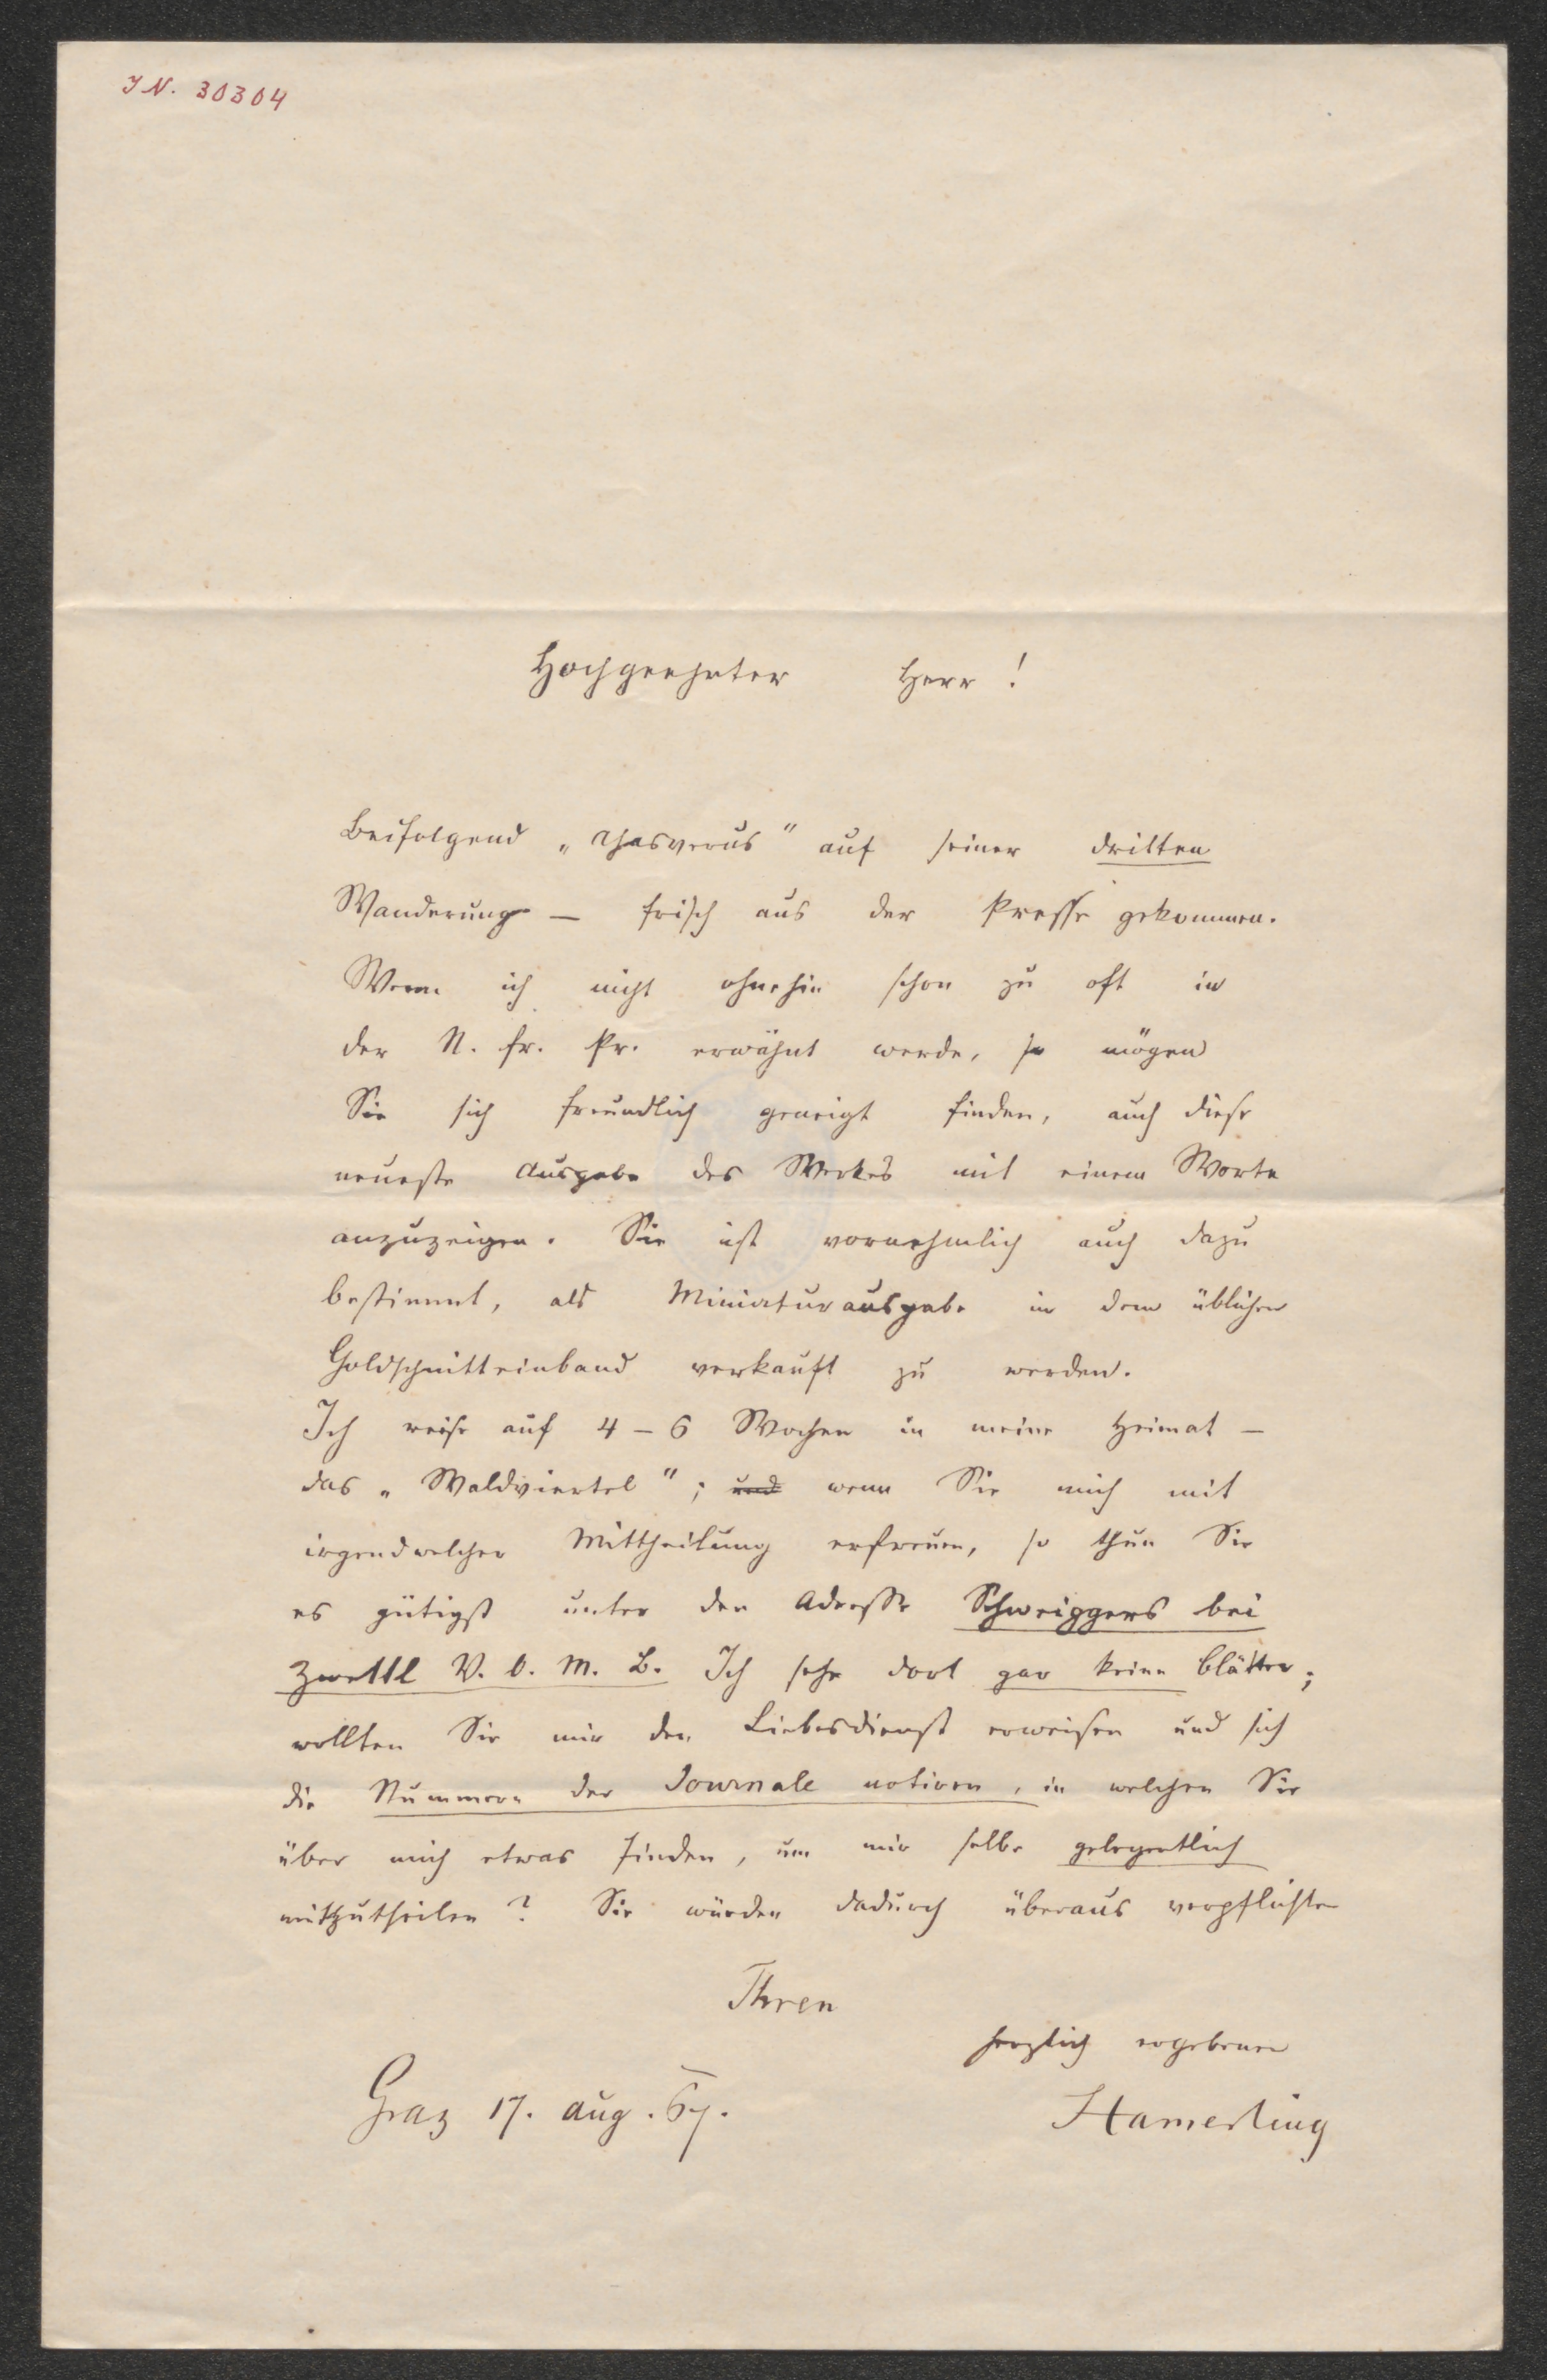 IN. 30304
Hochgeehrter Herr!
Beifolgend „Ahasverus" auf seiner dritten
Wanderung — frisch aus der Presse gekommen.
Wenn ich nicht ohnehin schon zu oft in
der N. fr. Pr. erwähnt werde, so mögen
Sie sich freundlich geneigt finden, auch diese
neueste Ausgabe des Werkes mit einem Worte
anzuzeigen. Sie ist vornehmlich auch dazu
bestimmt, als Miniaturausgabe in dem üblichen
Goldschnitteinband verkauft zu werden.
Ich reise auf 4–6 Wochen in meine Heimat –
das „Waldviertel"; und wenn Sie mich mit
irgendwelcher Mittheilung erfreuen, so thun Sie
es gütigst unter der Adresse Schweiggers bei
Zwettl V. O. M. B. Ich sehe dort gar keine Blätter;
wollten Sie mir den Liebesdienst erweisen und sich
die Nummern der Journale notiren, in welchen Sie
über mich etwas finden, um mir selbe gelegentlich
mitzutheilen? Sie würden dadurch überaus verpflichten
Ihren
herzlich ergebenen
Graz 17. Aug. 67.
Hamerling